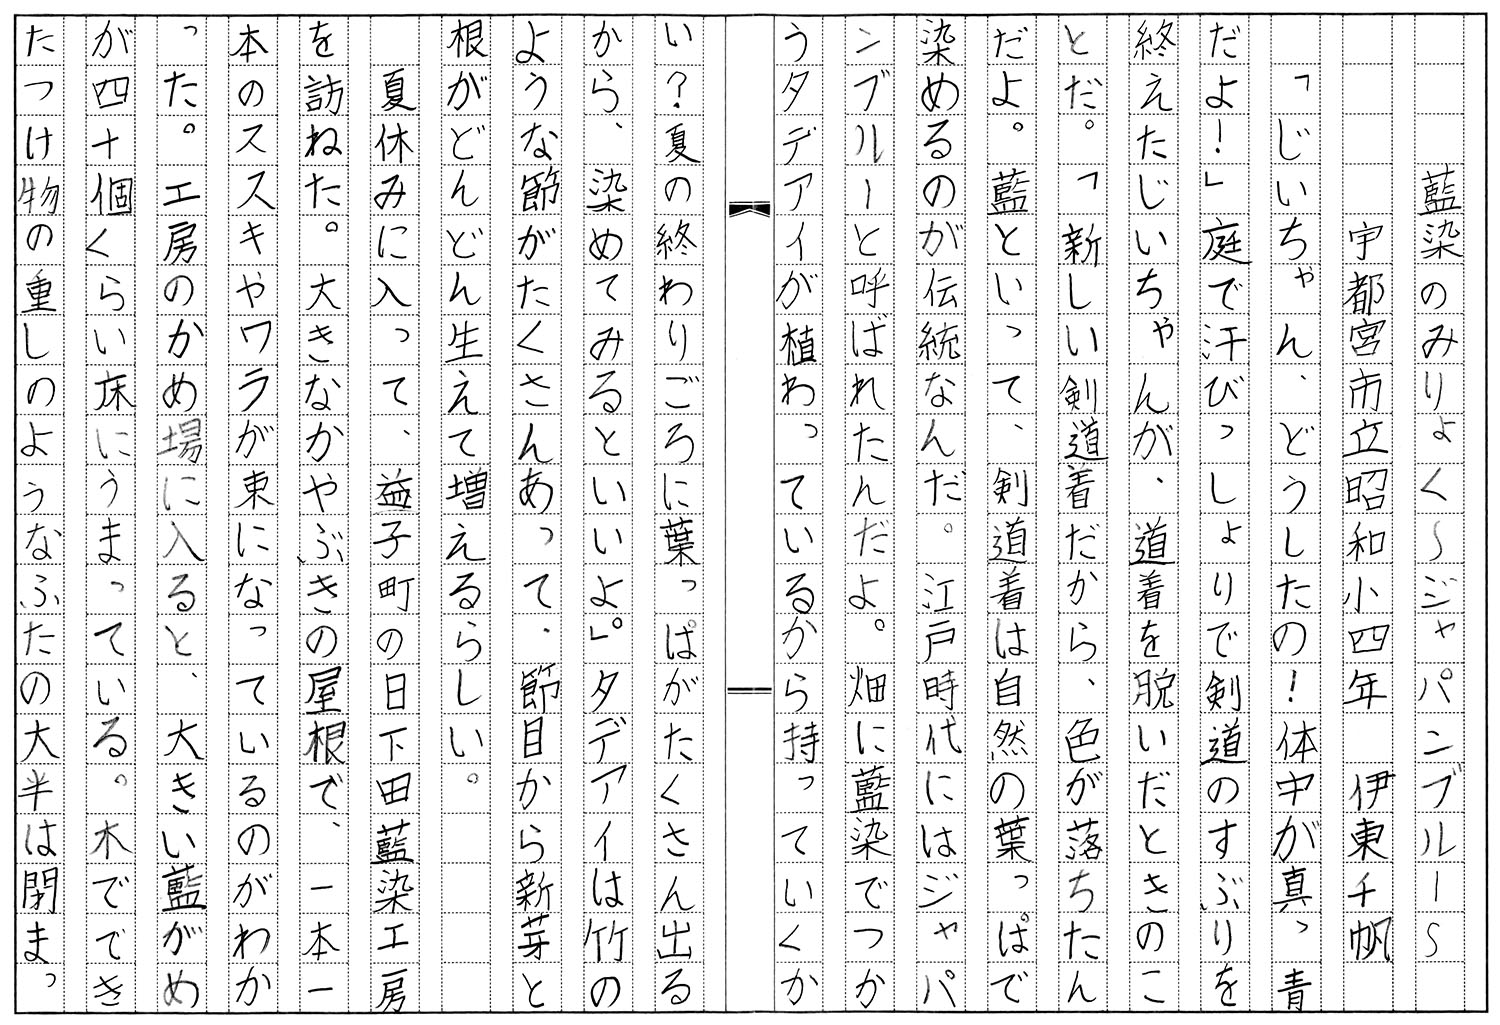 藍染のみりょく～ジャパンブルー～
宇都宮市立昭和小四年　伊東千帆
「じいちゃん、どうしたの！体中が真っ青
だよ！」庭で汗びっしょりで剣道のすぶりを
終えたじいちゃんが、道着を脱いだときのこ
とだ。「新しい剣道着だから、色が落ちたん
だよ。藍といって、剣道着は自然の葉っぱで
染めるのが伝統なんだ。江戸時代にはジャパ
ンブルーと呼ばれたんだよ。畑に藍染でつか
うタデアイが植わっているから持っていくか
い？夏の終わりごろに葉っぱがたくさん出る
から、染めてみるといいよ。」タデアイは竹の
ような節がたくさんあって、節目から新芽と
根がどんどん生えて増えるらしい。
夏休みに入って、益子町の日下田藍染工房
を訪ねた。大きなかやぶきの屋根で、一本一
本のススキやワラが束になっているのがわか
った。工房のかめ場に入ると、大きい藍がめ
が四十個くらい床にうまっている。木ででき
たつけ物の重しのようなふたの大半は閉まっ